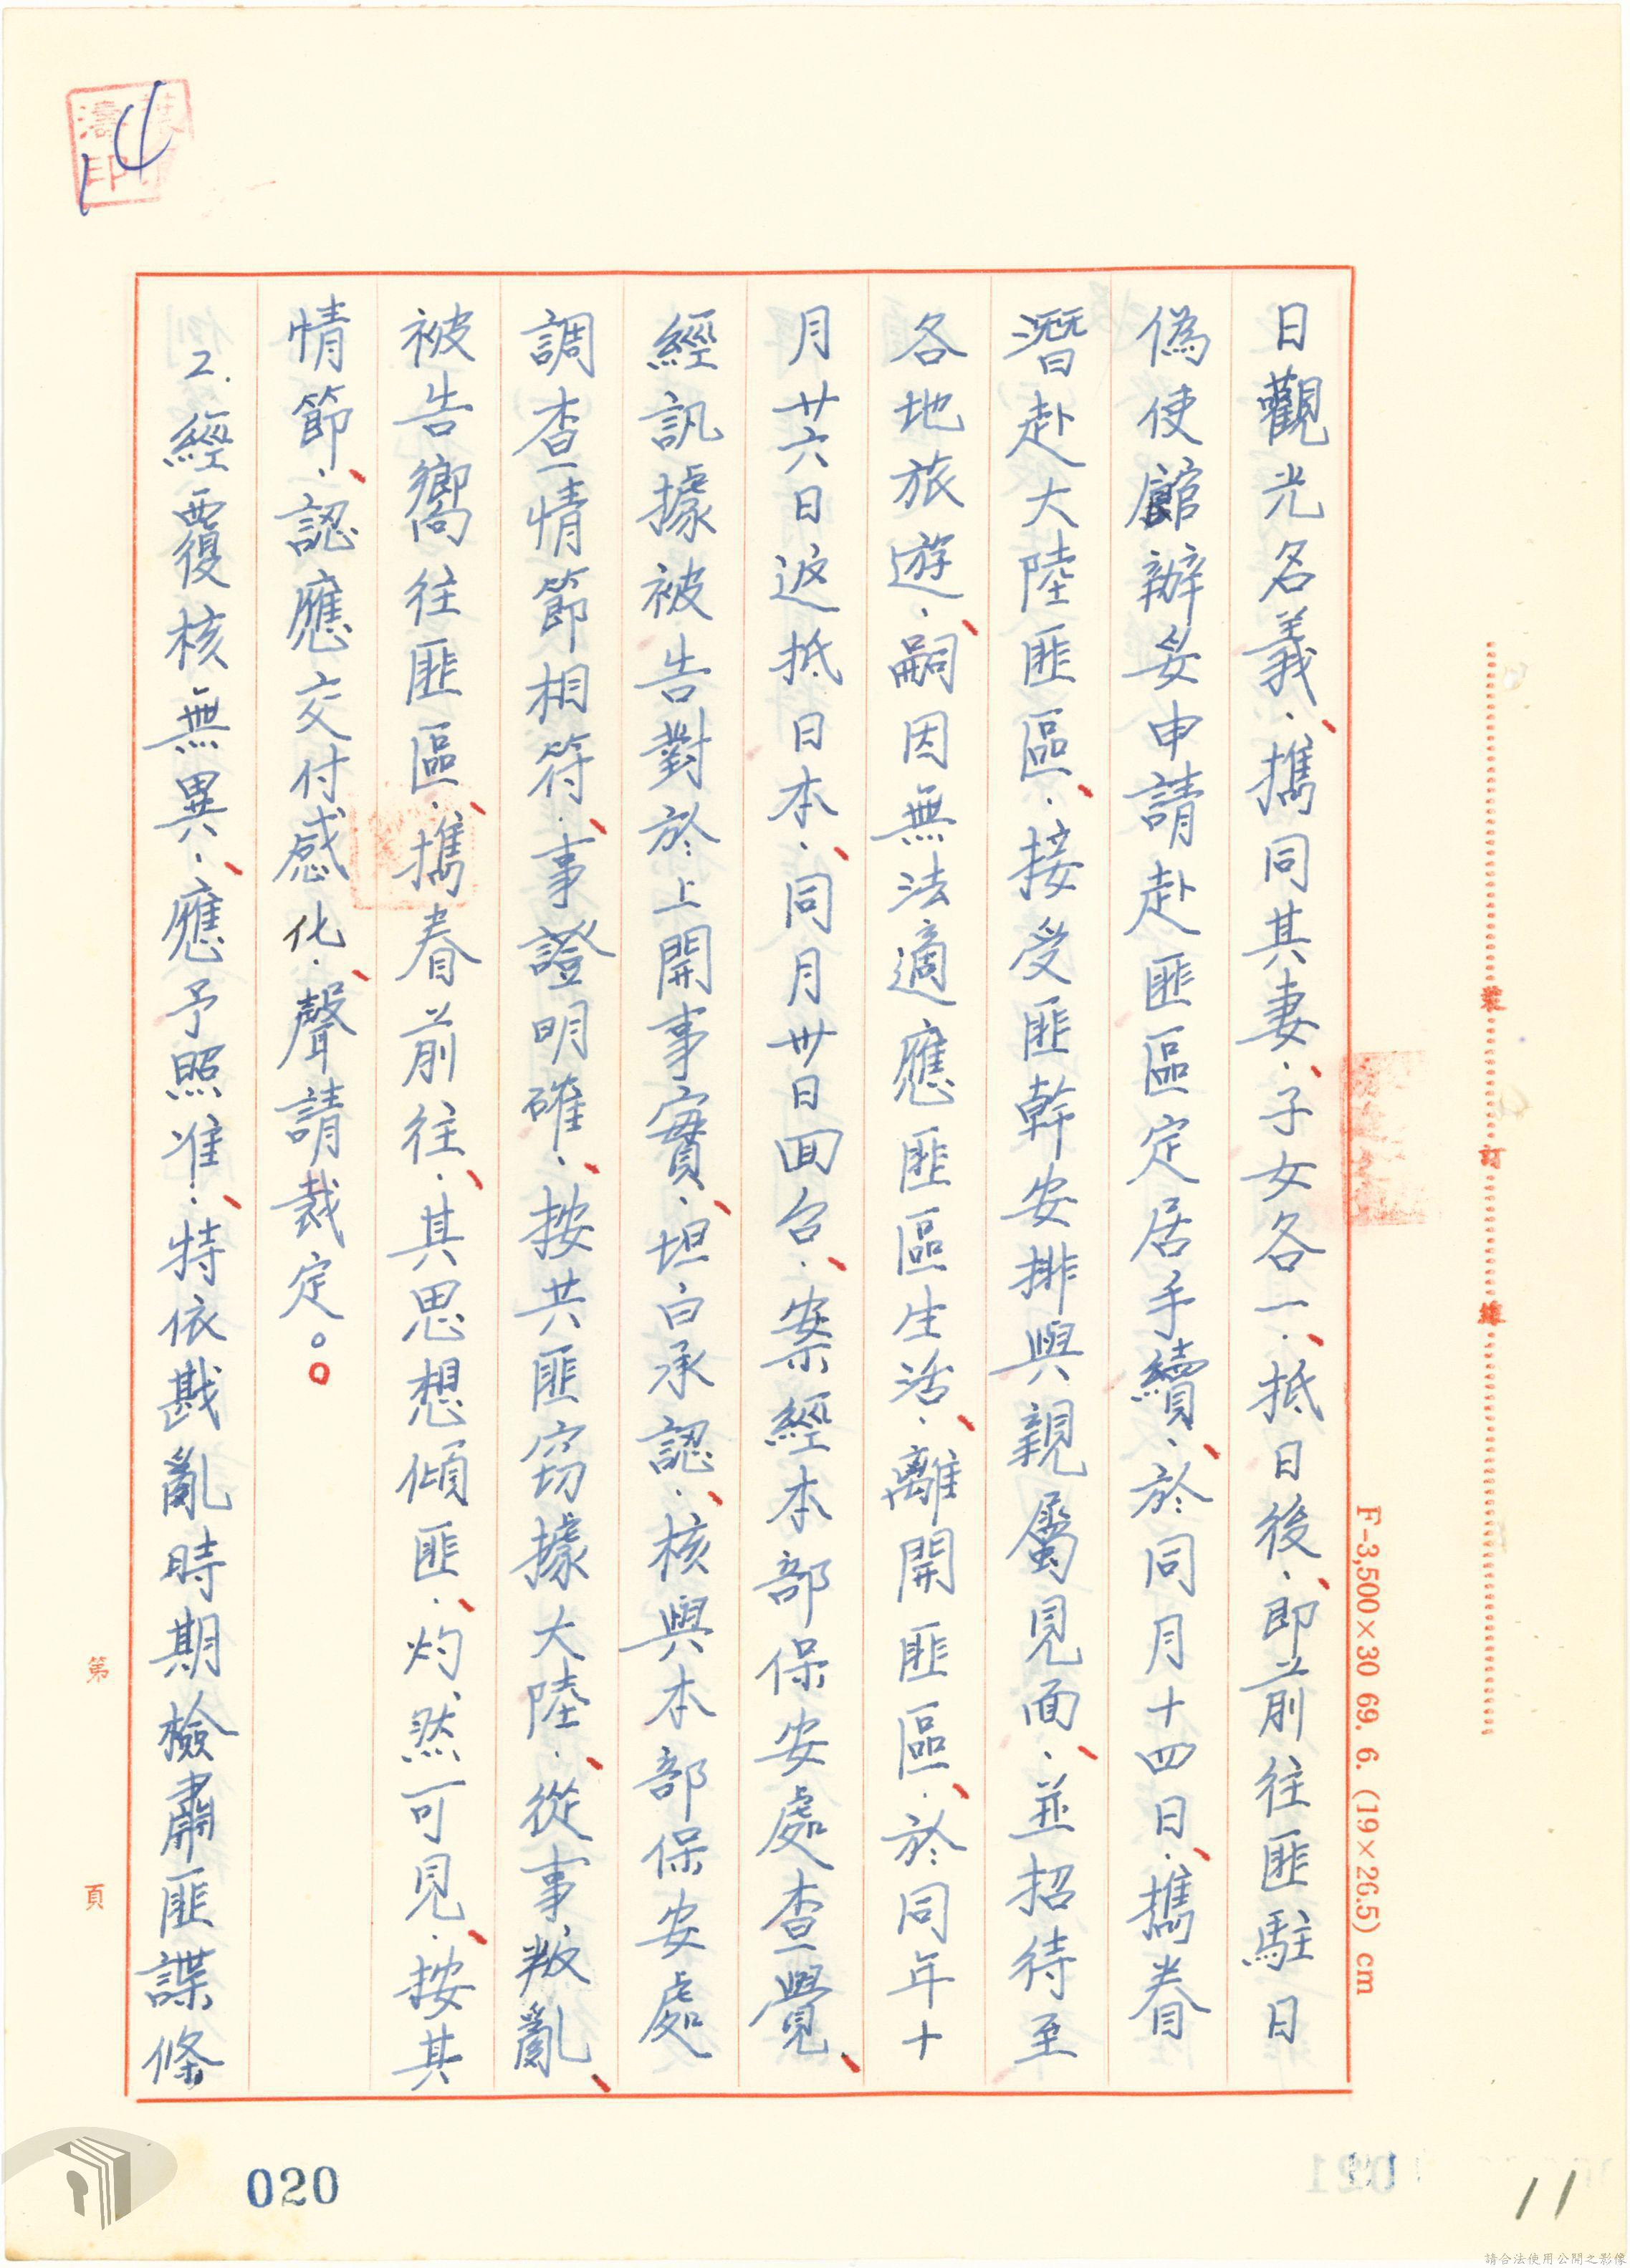 日觀光名義、攜同其妻、子女各一、抵日後、即前往匪駐日
偽使館辦妥申請赴匪區定居手續、於同月十四日、攜眷
潛赴大陸匪區、接受匪幹安排與親屬見面、並招待至
各地旅遊、嗣因無法適應匪區生活、離開匪區、於同年十
月廿六日返抵日本、同月卅日回台、案經本部保安處查覺、
經訊據被告對於上開事實、坦白承認、核與本部保安處
調查情節相符、事證明確、按共匪窃據大陸、從事叛亂、
被告嚮往匪區、攜眷前往、其思想傾匪、灼然可見、按其
情節、認應交付感化、聲請裁定。。
2.經覆核無異、應予照准、特依戡亂時期檢肅匪諜條
裝
訂
線
F-3,500×30 69. 6. (19×26.5) cm
第 頁
14
濤
印
020
021
11
請合法使用公開之影像